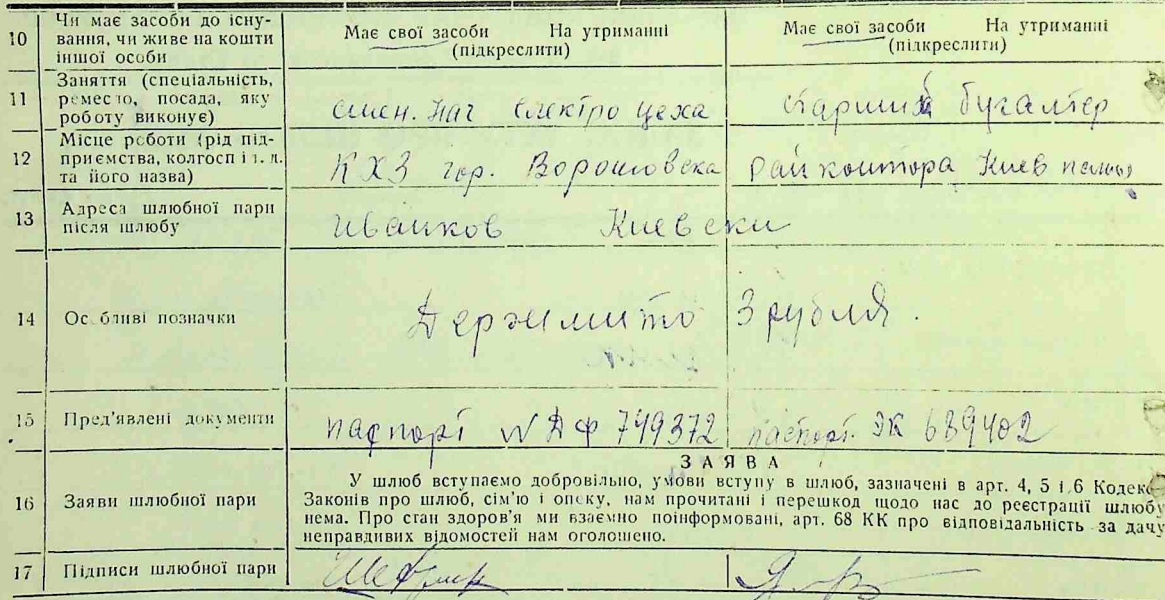 10 Чи має засоби до існування, чи живе на кошти іншої особи
Має свої засоби На утриманні (підкреслити)
Має свої засоби На утриманні (підкреслити)
11 Заняття (спеціальність, ремесло, посада, яку роботу виконує)
смен. нач електро цеха
старший бугалтер
12 Місце роботи (рід підприємства, колгосп і т. д. та його назва)
КХЗ гор. Ворошовска
Райконтора Киев
13 Адреса шлюбної пари після шлюбу
Иванков Киевски
14 Особливі позначки
Держмито 3 рубля.
15 Пред'явлені документи
паспорт № ДФ 749372
паспорт. ЭК 689402
16 Заяви шлюбної пари
ЗАЯВА
У шлюб вступаємо добровільно, умови вступу в шлюб, зазначені в арт. 4, 5 і 6 Кодекс
Законів про шлюб, сім'ю і опіку, нам прочитані і перешкод щодо нас до реєстрації шлюбу
нема. Про стан здоров'я ми взаємно поінформовані, арт. 68 КК про відповідальність за дачу
неправдивих відомостей нам оголошено.
17 Підписи шлюбної пари